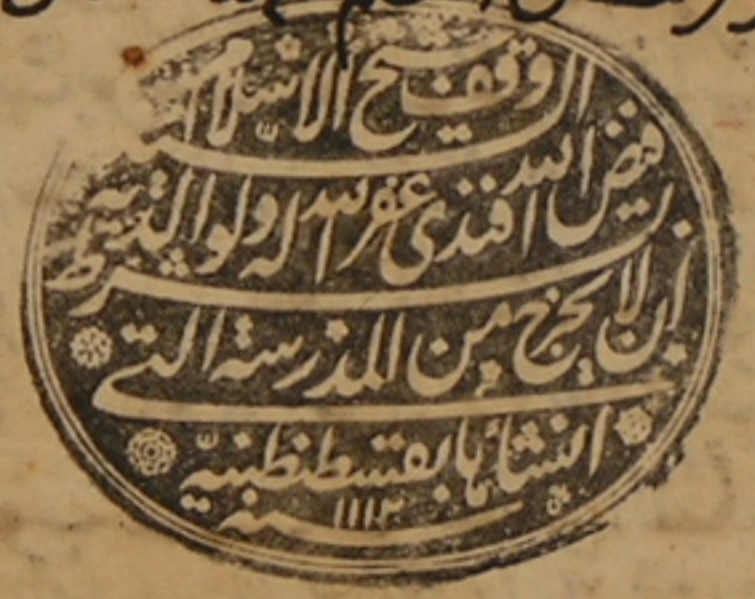 وقف شيخ الاسلام السيد
فيض الله افندى غفر الله له ولوالديه بشرط
أن لا يخرج من المدرسة التي
انشأها بقسطنطينية
سنة ١١١٣